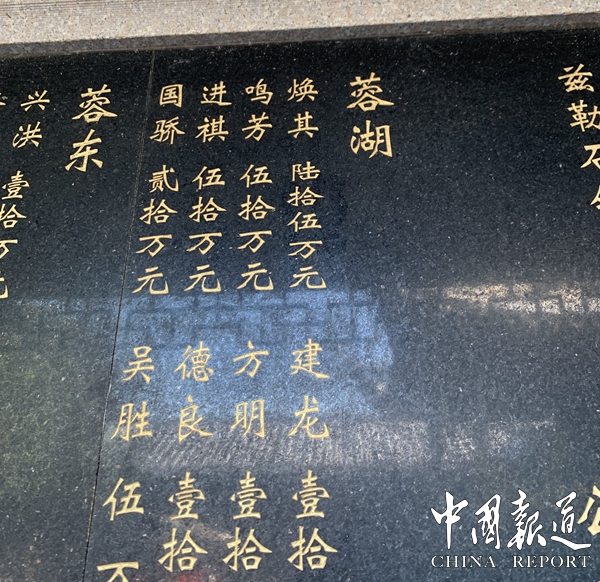 兹勒石
蓉湖
焕其 陆拾伍万元
鸣芳 伍拾万元
进祺 伍拾万元
国骄 贰拾万元
建龙 壹拾
方明 壹拾
德良 壹拾
吴胜 伍万
蓉东
兴洪 壹拾万元
中国报道
CHINA REPORT